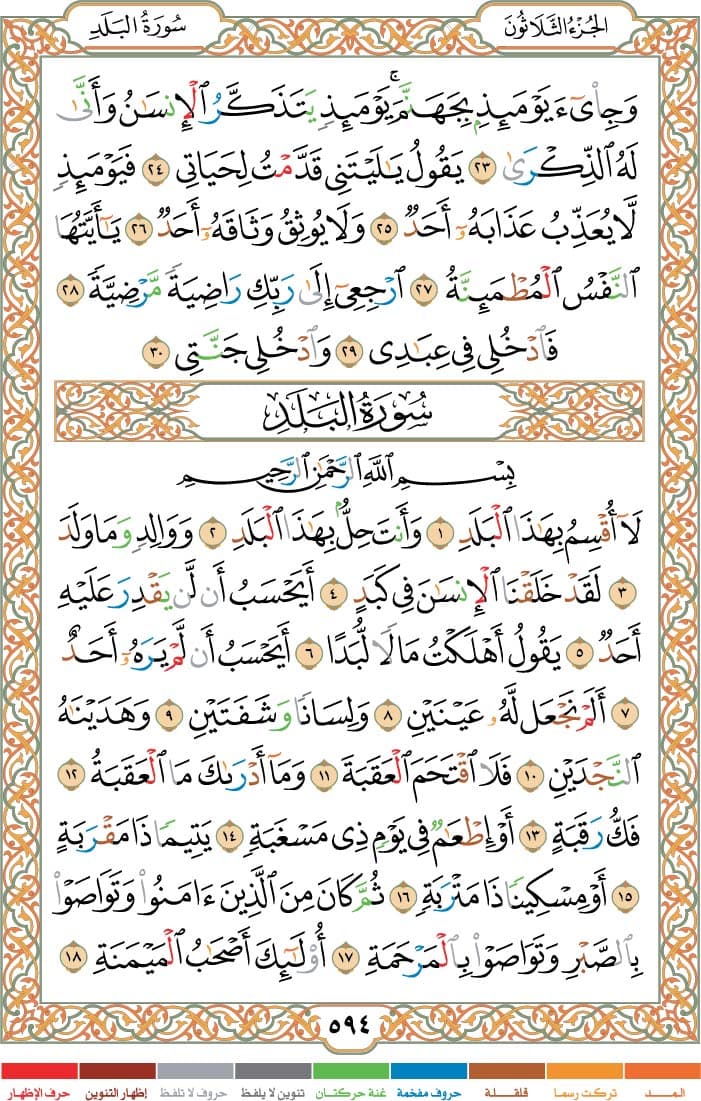 الجُزْءُ الثَّلَاثُونَ
سُورَةُ البَلَدِ
وَجِاْىٓءَ يَوْمَئِذِۭ بِجَهَنَّمَۚ يَوْمَئِذٖ يَتَذَكَّرُ ٱلۡإِنسَٰنُ وَأَنَّىٰ
لَهُ ٱلذِّكۡرَىٰ ٢٣ يَقُولُ يَٰلَيۡتَنِي قَدَّمۡتُ لِحَيَاتِي ٢٤ فَيَوۡمَئِذٖ
لَّا يُعَذِّبُ عَذَابَهُۥٓ أَحَدٞ ٢٥ وَلَا يُوثِقُ وَثَاقَهُۥٓ أَحَدٞ ٢٦ يَٰٓأَيَّتُهَا
ٱلنَّفۡسُ ٱلۡمُطۡمَئِنَّةُ ٢٧ ٱرۡجِعِيٓ إِلَىٰ رَبِّكِ رَاضِيَةٗ مَّرۡضِيَّةٗ ٢٨
فَٱدۡخُلِي فِي عِبَٰدِي ٢٩ وَٱدۡخُلِي جَنَّتِي ٣٠
سُورَةُ البَلَدِ
بِسۡمِ ٱللَّهِ ٱلرَّحۡمَٰنِ ٱلرَّحِيمِ
لَآ أُقۡسِمُ بِهَٰذَا ٱلۡبَلَدِ ١ وَأَنتَ حِلُّۢ بِهَٰذَا ٱلۡبَلَدِ ٢ وَوَالِدٖ وَمَا وَلَدَ
٣ لَقَدۡ خَلَقۡنَا ٱلۡإِنسَٰنَ فِي كَبَدٍ ٤ أَيَحۡسَبُ أَن لَّن يَقۡدِرَ عَلَيۡهِ
أَحَدٞ ٥ يَقُولُ أَهۡلَكۡتُ مَالٗا لُّبَدًا ٦ أَيَحۡسَبُ أَن لَّمۡ يَرَهُۥٓ أَحَدٌ
٧ أَلَمۡ نَجۡعَل لَّهُۥ عَيۡنَيۡنِ ٨ وَلِسَانٗا وَشَفَتَيۡنِ ٩ وَهَدَيۡنَٰهُ
ٱلنَّجۡدَيۡنِ ١٠ فَلَا ٱقۡتَحَمَ ٱلۡعَقَبَةَ ١١ وَمَآ أَدۡرَىٰكَ مَا ٱلۡعَقَبَةُ ١٢
فَكُّ رَقَبَةٍ ١٣ أَوۡ إِطۡعَٰمٞ فِي يَوۡمٖ ذِي مَسۡغَبَةٖ ١٤ يَتِيمٗا ذَا مَقۡرَبَةٍ
١٥ أَوۡ مِسۡكِينٗا ذَا مَتۡرَبَةٖ ١٦ ثُمَّ كَانَ مِنَ ٱلَّذِينَ ءَامَنُواْ وَتَوَاصَوۡاْ
بِٱلصَّبۡرِ وَتَوَاصَوۡاْ بِٱلۡمَرۡحَمَةِ ١٧ أُوْلَٰٓئِكَ أَصۡحَٰبُ ٱلۡمَيۡمَنَةِ ١٨
٥٩٤
المـــد
تركت رسما
قلقـلة
حروف مفخمة
غنة حركتـان
تنوين لا يلفظ
حروف لا تلفظ
إظهار التنوين
حرف الإظهار